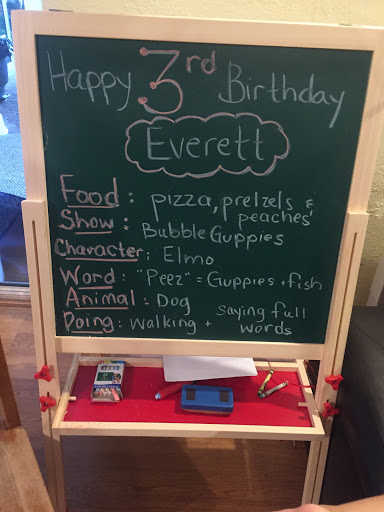 Happy 3rd Birthday
Everett
Food: pizza, pretzels & peaches
Show: Bubble Guppies
Character: Elmo
Word: "Peez" = Guppies + fish
Animal: Dog
Doing: walking + saying full words